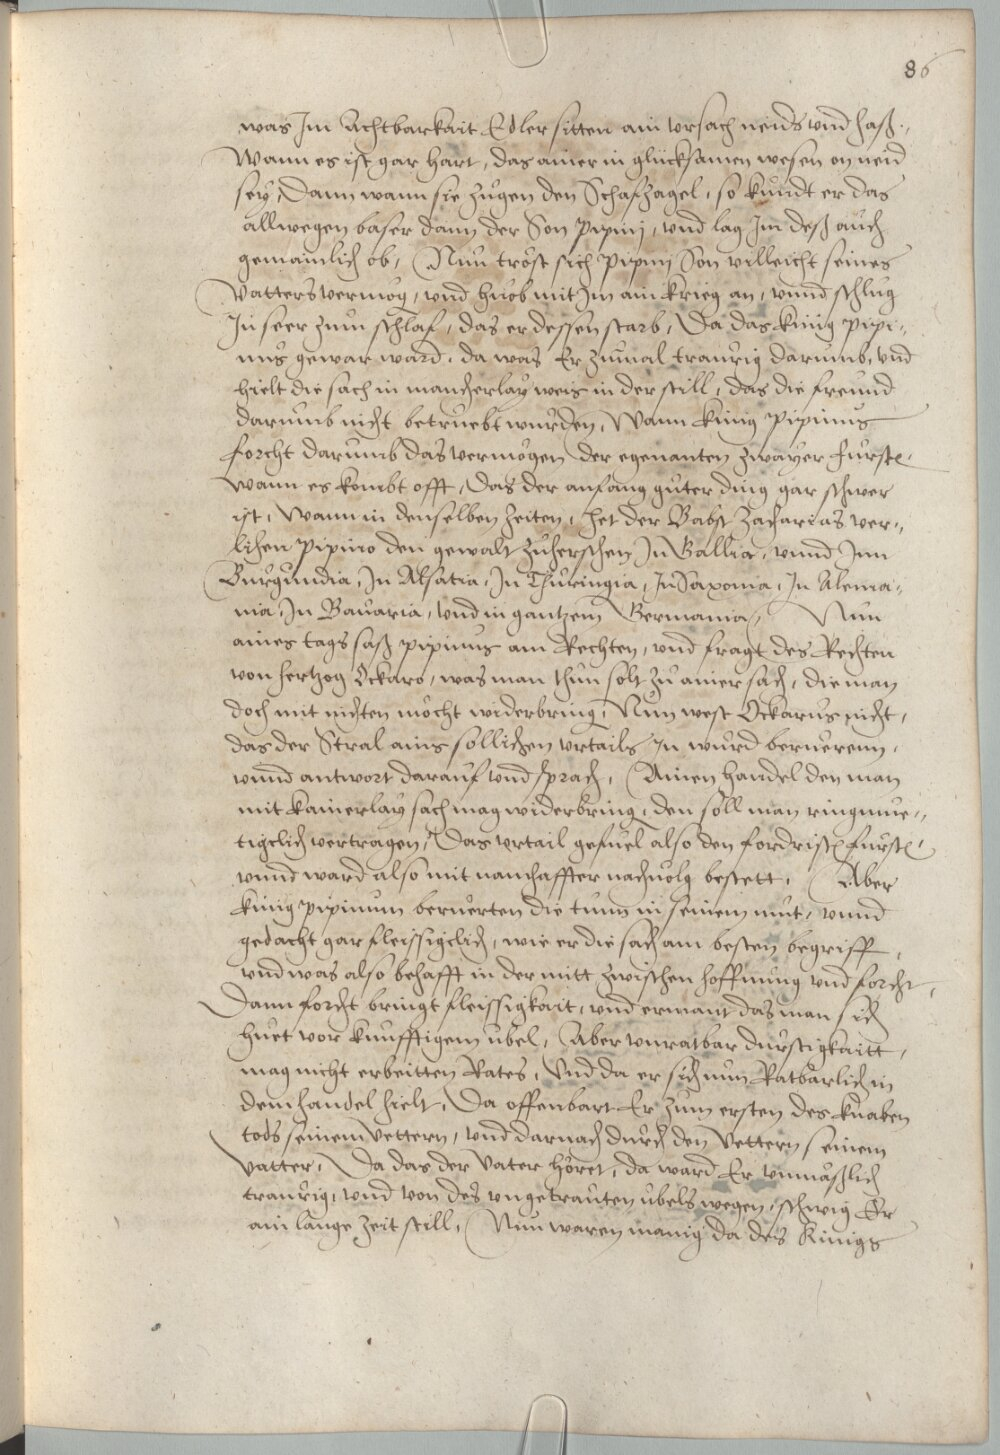 86
was Im Achtbarkait Edler sitten ain ursach neids und haß.,
Wann es ist gar hart, das ainer in glücksamen wesen on neid
sey, Dann wann sie zugen den Schafzagel, so kundt er das
allwegen baser dann der Son Pipinj, und lag Im deß auch
gemainlich ob, Nun tröst sich Pipinj Son villeicht seines
Vatters vermög, und huob mit Im ain krieg an, unnd schlug
In seer zum schlaf, das er dessen starb, Da das künig Pipi„
nus gewar ward, da was Er zumal traurig darumb, und
hielt die sach in mancherlay weis in der still, das die freund
darumb nicht betruebt wurden, Wann künig Pipinus
forcht darumb das vermögen der egenanten zwayer fürste,
wann es kombt offt, das der anfang guter ding gar schwer
ist, Wann in denselben zeiten, het der Babst Zacharias ver„
lichen Pipino den gewalt zuherschen In Gallia, unnd Inn
Burgundia, In Alsatia, In Thuringia, In Saxonia, In Alema„
nia, In Bavaria, und in gantzem Germania, Nun
aines tags saß Pipinus am Rechten, und fragt des Rechten
von hertzog Ockaro, was man thun solt zu ainer sach, die man
doch mit nichten möcht widerbring, Nun west Ockarus nicht,
das der Stral ains sollichen urtails In wurd beruerenn,
unnd antwort darauf und sprach, Ainen handel den man
mit kainerlay sach mag widerbring, den soll man ringmue„
tigclich vertragen, Das urtail gefiel also den fordrist fürste,
unnd ward also mit nanhaffter nachvolg bestett, Aber
künig Pipinum beruerten die tünn in seinem mut, unnd
gedacht gar fleissigclich, wie er die sach am besten begriff,
und was also behafft in der mitt zwischen hoffnung und forcht,
Dann forcht bringt fleissigkait, und ermant das man sich
huet vor künfftigem übel, Aber unratbar durstigkaitt,
mag nicht erbeitten Rates, Und da er sich nun Ratbärlich in
dem handel hielt, Da offenbart Er zum ersten des knaben
tods seinem Vettern, und darnach durch den Vettern seinem
Vatter, Da das der Vater höret, da ward Er unmäßlich
traurig, und von des ungetrauten übels wegen, schwig Er
ain lange zeit still, Nun waren manig da des Künigs